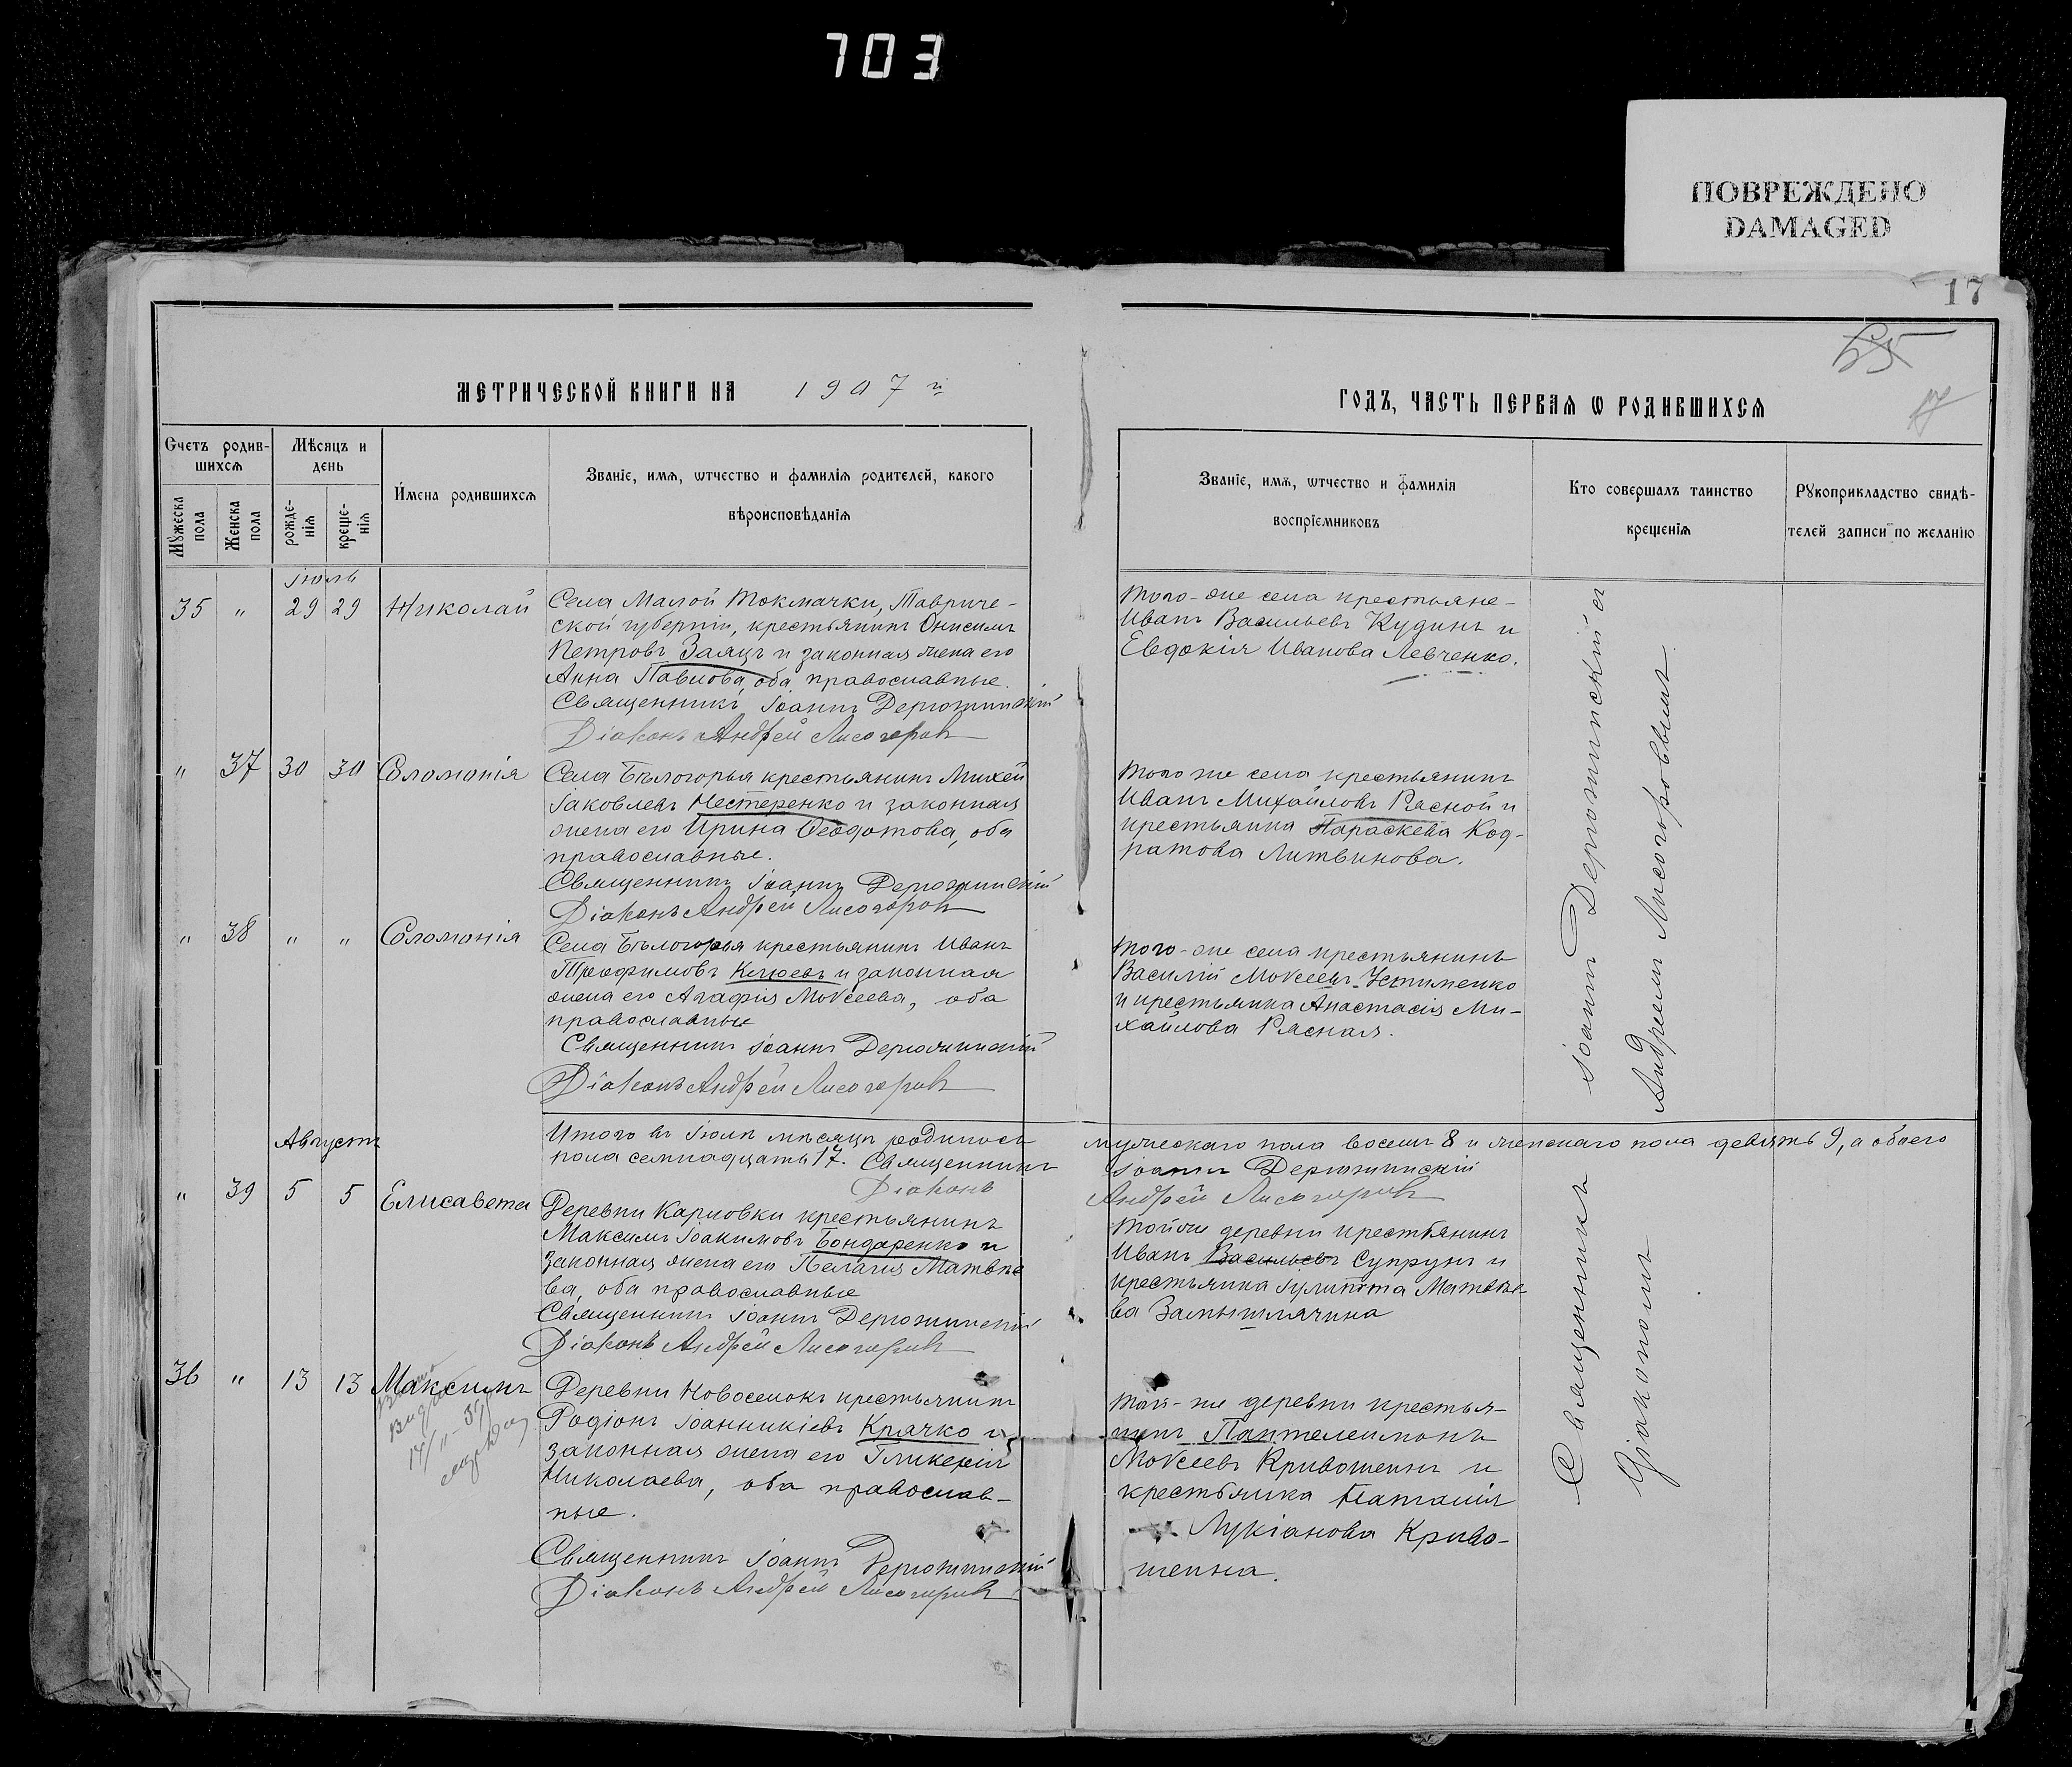 703
ПОВРЕЖДЕНО
DAMAGED
17
65
17
МЕТРИЧЕСКОЙ КНИГИ НА 1907 й
ГОДЪ, ЧАСТЬ ПЕРВАЯ Ѡ РОДИВШИХСЯ
Счетъ родив-
шихся
Мѣсяцъ и
день
Мужеска пола
Женска пола
рожде-
нія
креще-
нія
Имена родившихся
Званіе, имя, ѡтчество и фамилія родителей, какого
вѣроисповѣданія
Званіе, имя, ѡтчество и фамилія
воспріемниковъ
Кто совершалъ таинство
крещенія
Рукоприкладство свидѣ-
телей записи по желанію
Іюль
35 " 29 29 Николай
Села Малой Токмачки, Тавриче-
ской губерніи, крестьянинъ Онисимъ
Петровъ Заяцъ и законная жена его
Анна Павлова, оба православные.
Священникъ Іоаннъ Дерюжинскій
Діаконъ Андрей Лисогоровъ
Того-же села крестьяне-
Иванъ Васильевъ Кудинъ и
Евдокія Иванова Левченко.
" 37 30 30 Соломонія
Села Бѣлогорья крестьянинъ Михей
Іаковлевъ Нестеренко и законная
жена его Ирина Ѳеодотова, оба
православные.
Священникъ Іоаннъ Дерюжинскій
Діаконъ Андрей Лисогоровъ
Того же села крестьянинъ
Иванъ Михайловъ Рясной и
крестьянка Параскева Код-
ратова Литвинова.
" 38 " " Соломонія
Села Бѣлогорья крестьянинъ Иванъ
Трофимовъ и законная
жена его Агафія Моѵсеева, оба
православные
Священникъ Іоаннъ Дерюжинскій
Діаконъ Андрей Лисогоровъ
Того-же села крестьянинъ
Василій Моѵсеевъ Устименко
и крестьянка Анастасія Ми-
хайлова Рясная.
Итого въ Іюлѣ мѣсяцѣ родилось мужескаго пола восемь 8 и женскаго пола девять 9, а обоего
пола семнадцать 17. Священникъ Іоаннъ Дерюжинскій
Діаконъ Андрей Лисогоровъ
Августъ
" 39 5 5 Елисавета
Деревни Карловки крестьянинъ
Максимъ Іоакимовъ Бондаренко и
законная жена его Пелагія Матвѣе
ва, оба православные
Священникъ Іоаннъ Дерюжинскій
Діаконъ Андрей Лисогоровъ
Той же деревни крестьянинъ
Иванъ Васильевъ Супрунъ и
крестьянка Іулитта Матвѣе-
ва Замышлячина
36 " 13 13 Максимъ
Деревни Новоселокъ крестьянинъ
Родіонъ Іоанникіевъ Крячко и
законная жена его Гликерія
Николаева, оба православ-
ные.
Священникъ Іоаннъ Дерюжинскій
Діаконъ Андрей Лисогоровъ
Той-же деревни крестья-
нинъ Пантелеимонъ
Моѵсеевъ Кривошеинъ и
крестьянка Наталія
Лукіанова Криво-
шеина.
Священникъ Іоаннъ Дерюжинскій съ
Діакономъ Андреемъ Лисогоровымъ